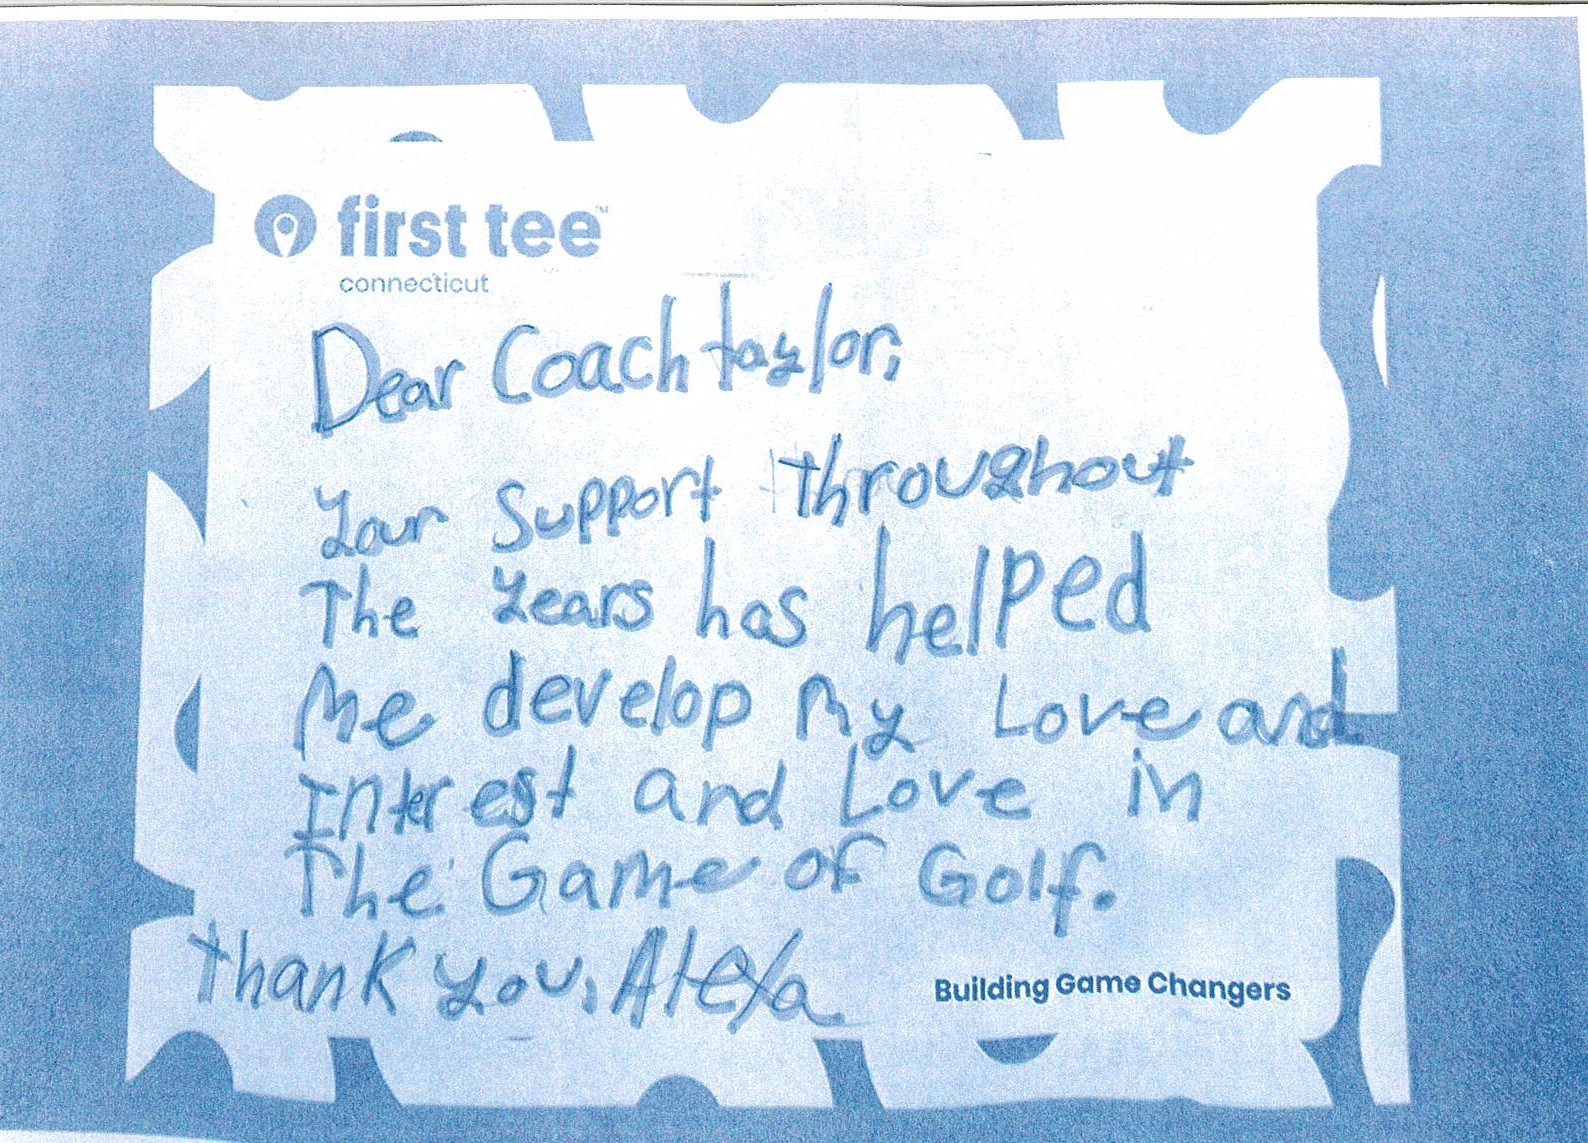 first tee™
connecticut
Dear Coach taylor,
Your Support throughout
The Years has helped
Me develop My Love and
Interest and Love in
The Game of Golf.
thank you, Alexa
Building Game Changers